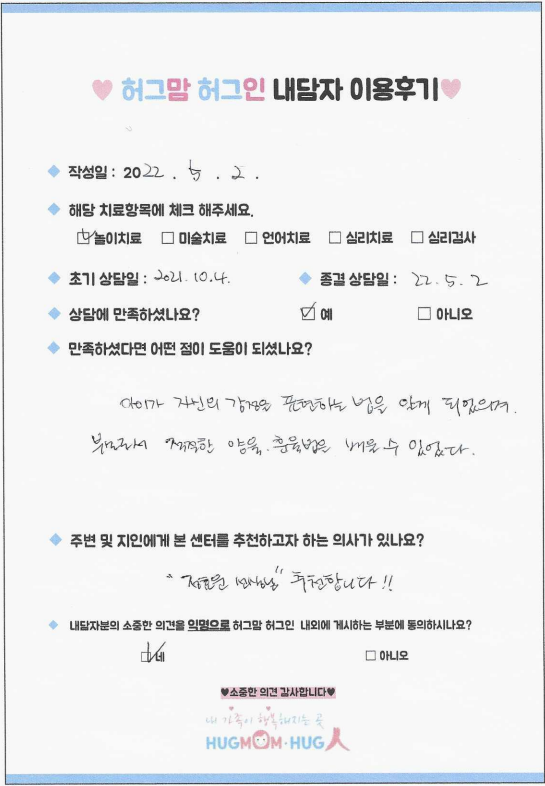 ♥ 허그맘 허그인 내담자 이용후기 ♥
◆ 작성일 : 2022 . 5 . 2 .
◆ 해당 치료항목에 체크 해주세요.
☑ 놀이치료 □ 미술치료 □ 언어치료 □ 심리치료 □ 심리검사
◆ 초기 상담일 : 2021. 10. 4. ◆ 종결 상담일 : 22. 5. 2
◆ 상담에 만족하셨나요? ☑ 예 □ 아니오
◆ 만족하셨다면 어떤 점이 도움이 되셨나요?
아이가 자신의 감정을 표현하는 법을 알게 되었으며.
부모로서 적절한 양육. 훈육법을 배울 수 있었다.
◆ 주변 및 지인에게 본 센터를 추천하고자 하는 의사가 있나요?
" 선생님" 추천합니다 !!
◆ 내담자분의 소중한 의견을 익명으로 허그맘 허그인 내외에 게시하는 부분에 동의하시나요?
☑ 네 □ 아니오
♥소중한 의견 감사합니다♥
내 가족이 행복해지는 곳
HUGMOM·HUG人